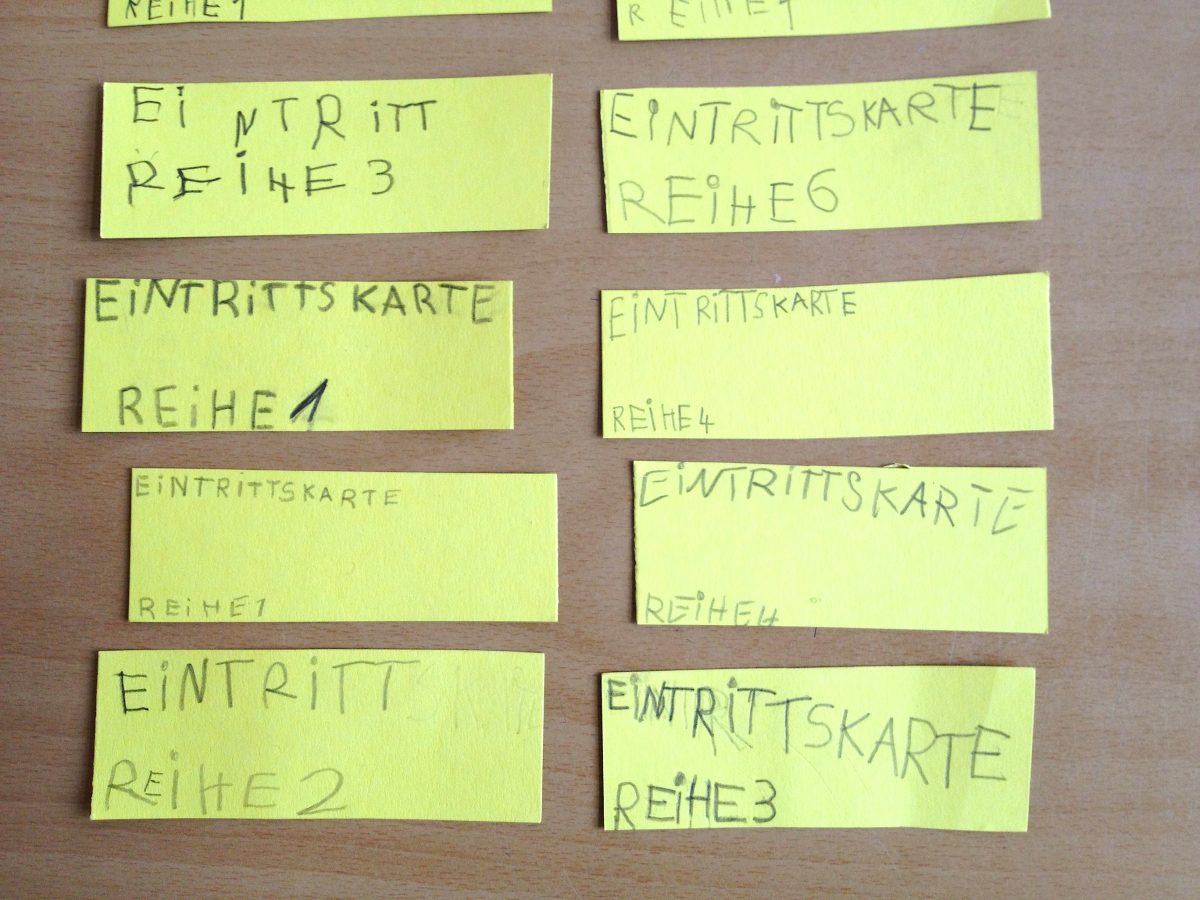 REiHE 1
REiHE 1
EiNTRiTT
REiHE 3
EiNTRiTTSKARTE
REiHE 6
EiNTRiTTSKARTE
REiHE 1
EiNTRiTTSKARTE
REiHE 4
EiNTRiTTSKARTE
REiHE 1
EiNTRiTTSKARTE
REiHE 4
EiNTRiTT
REiHE 2
EiNTRiTTSKARTE
REiHE 3